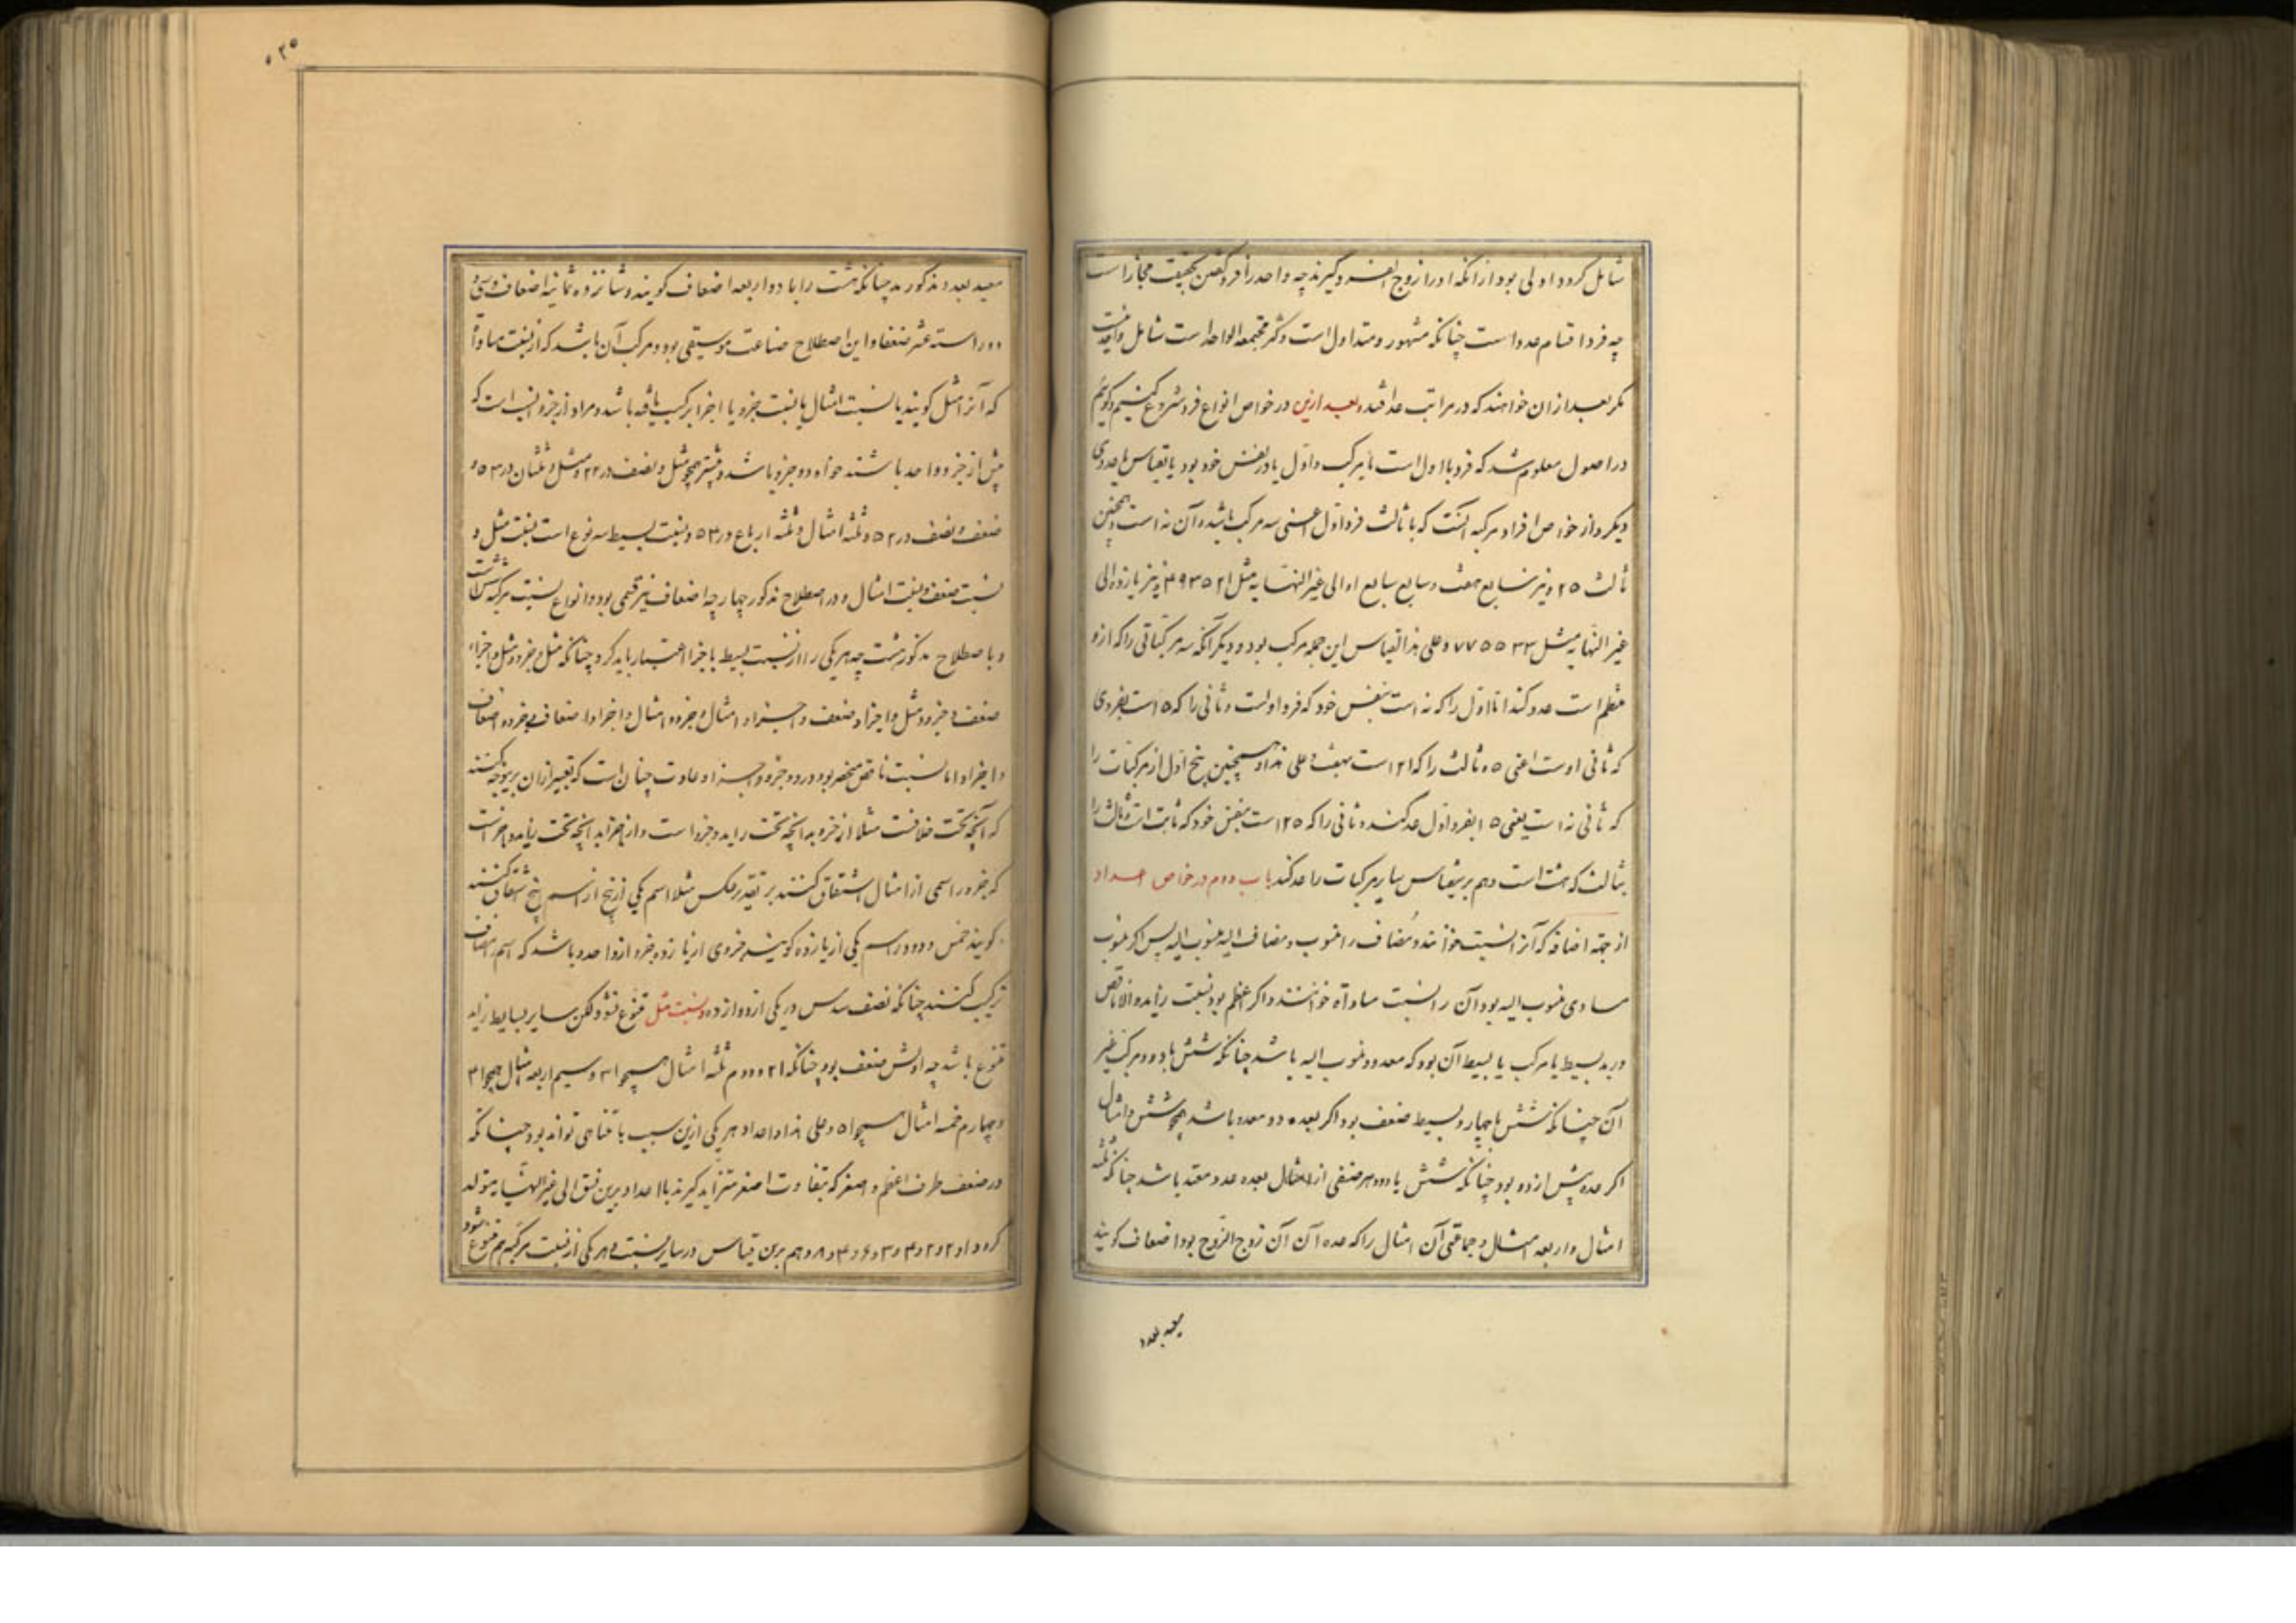 شامل کردد اولی بود از انکه او را زوج الفرد گیرند چه واحد را فرد گفتن بحقیقت مجاز است
چه فرد اقسام عدد است چنانکه مشهور و متداول است و کثرة مجتمعه الواحد است شامل واحد نیست
مگر بعد از آن خواهند که در مراتب عد افتد و بعد ازین در خواص انواع فرد شروع کنیم و گوئیم
در اصول معلوم شد که فرد یا اول است یا مرکب و اول یا در نفس خود بود یا بقیاس با عددی
دیگر و از خواص افراد مرکبه آنست که با ثالث فرد اول اعنی سه مرکب باشد و آن نه است و همچنین
ثالث ۲۵ و نیز سابع هفت و سابع سابع او الی غیر النهایه مثل ۲۱ ۳۵ ۴۹ و نیز یازده الی
غیر النهایه مثل ۳۳ ۵۵ ۷۷ و علی هذا القیاس این جمله مرکب بود و دیگر آنکه سه مرکباتی را که از و
منظم است عد کند اما اول را که نه است بنفس خود که فرد اولست و ثانی را که ۱۵ است بفردی
که ثانی اوست اعنی ۵ و ثالث را که ۲۱ است بهفت و علی هذا و همچنین پنج اول از مرکبات را
که ثانی نه است یعنی ۱۵ بفرد اول عد کند و ثانی را که ۲۵ است بنفس خود که ثابت است و ثالث را
بثالث که هفت است و هم برین قیاس سایر مرکبات را عد کند باب دوم در خواص اعداد
از جهة اضافه که آنرا نسبت خوانند و مضاف را منسوب و مضاف الیه منسوب الیه پس اگر منسوب
مساوی منسوب الیه بود آن را نسبت مساواة خوانند و اگر اعظم بود نسبت زایده و الا ناقص
و هر یک بسیط یا مرکب یا بسیط آن بود که معدود منسوب الیه باشد چنانکه شش با دو و مرکب غیر
آن چنانکه شش با چهار و بسیط ضعف بود اگر بعده دو معدود باشد همچو شش و امثال
اگر عده بیش از دو بود چنانکه شش با دو و هر صنفی از امثال بعده عدد مقید باشد چنانکه ثلثه
امثال و اربعه امثال و جماعتی آن امثال را که عده آن آن زوج الزوج بود اضعاف گویند
مقید بعدد
مقید بعدد مذکور چنانکه هشت را با دو اربعه اضعاف گویند و شانزده ثمانیه اضعاف و سی و
دو را سته عشر ضعفا و این اصطلاح صناعت موسیقی بود و مرکب آن باشد که از نسبت مساواة
که آنرا مثل گویند یا نسبت امثال یا نسبت جزو یا اجزا ترکیب یافته باشد و مراد از جزو آنست که
بیش از جزو واحد باشند خواه دو جزو باشد و بیشتر همچو مثل و نصف در ۲۳ و مثل و ثلثان در ۵۳ و
ضعف و نصف در ۵۲ و ثلثه امثال و ثلثه ارباع در و نسبت بسیط سه نوع است نسبت مثل و
نسبت ضعف و نسبت امثال و در اصطلاح مذکور چهار چه اضعاف نیز قسمی بود و انواع نسبت مرکبه شش است
و باصطلاح مذکور هشت چه هر یکی را از نسبت بسیط با جزا اعتبار باید کرد چنانکه مثل و جزو و مثل و اجزاء
ضعف و جزو و ضعف و اجزاء و امثال و جزو و امثال و اجزا و اضعاف و جزو و اضعاف
و اجزاء و اما نسبت ناقص منحصر بود در دو جزو و اجزاء و عادت چنان است که تعبیر از آن برین وجه کنند
که آنچه تحت فلانست مثلا از جزو به آنچه تحت زاید و جزو است و از اجزا به آنچه تحت زاید و اجزاست
که جزو را اسمی از امثال اشتقاق کنند بر تقدیر عکس مثلا اسم یکی از پنج از اسم پنج اشتقاق کنند
گویند خمس و در اسم یکی از یازده گویند جزوی از یازده جزو از واحد و باشد که اسم مضاف
ترکیب کنند چنانکه نصف سدس در یکی از دوازده و نسبت مثل متنوع نشود لکن سایر بسایط زاید
متنوع باشد چه اولش ضعف بود چنانکه ۲۱ و دوم ثلثه امثال همچو ۳۱ و سیم اربعه امثال همچو ۴۱
و چهارم خمسه امثال همچو ۵۱ و علی هذا و اعداد هر یکی ازین سبب نامتناهی تواند بود چنانکه
در ضعف طرف اعظم و اصغر که بتفاوت اصغر متزاید گیرند با اعداد برین نسق الی غیر النهایه متولد
کردد ۱ و ۲ و ۲ و ۴ و ۳ و ۶ و ۴ و ۸ و هم برین قیاس در سایر نسبت و هر یکی از نسبت مرکبه هم متنوع شود